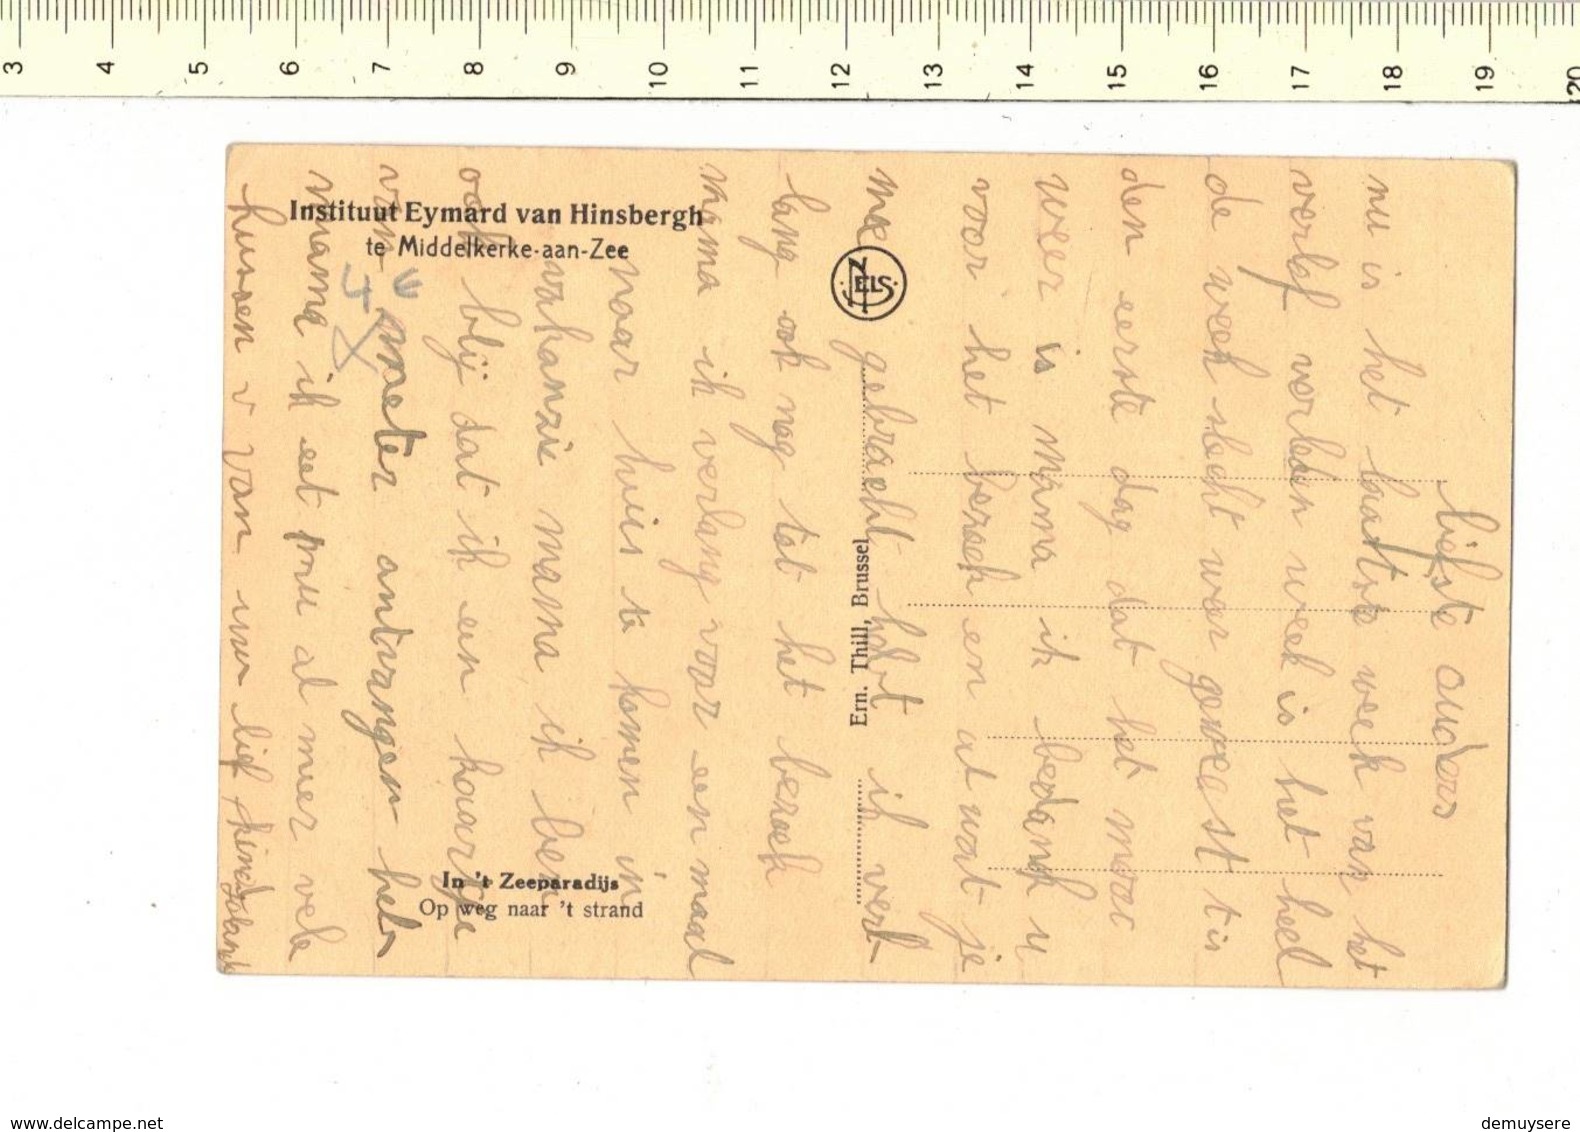 3 4 5 6 7 8 9 10 11 12 13 14 15 16 17 18 19 20
Instituut Eymard van Hinsbergh
te Middelkerke-aan-Zee
NELS
Ern. Thill, Brussel
In 't Zeeparadijs
Op weg naar 't strand
liefste ouders
nu is het laatste week van het
verlof verleden week is het heel
de week slecht weer geweest t is
den eerste dag dat het mooi
weer is mama ik bedank u
voor het bezoek en at wat je
me gebracht hebt ik verl
lang ook nog tot het bezoek
mama ik verlang voor een maal
naar huis te komen in
vakanzie mama ik ben
ook blij dat ik een kaartje
van meter antvangen heb
mama ik eet nu al meer vele
kussen v van uw lief kind
www.delcampe.net
demuysere